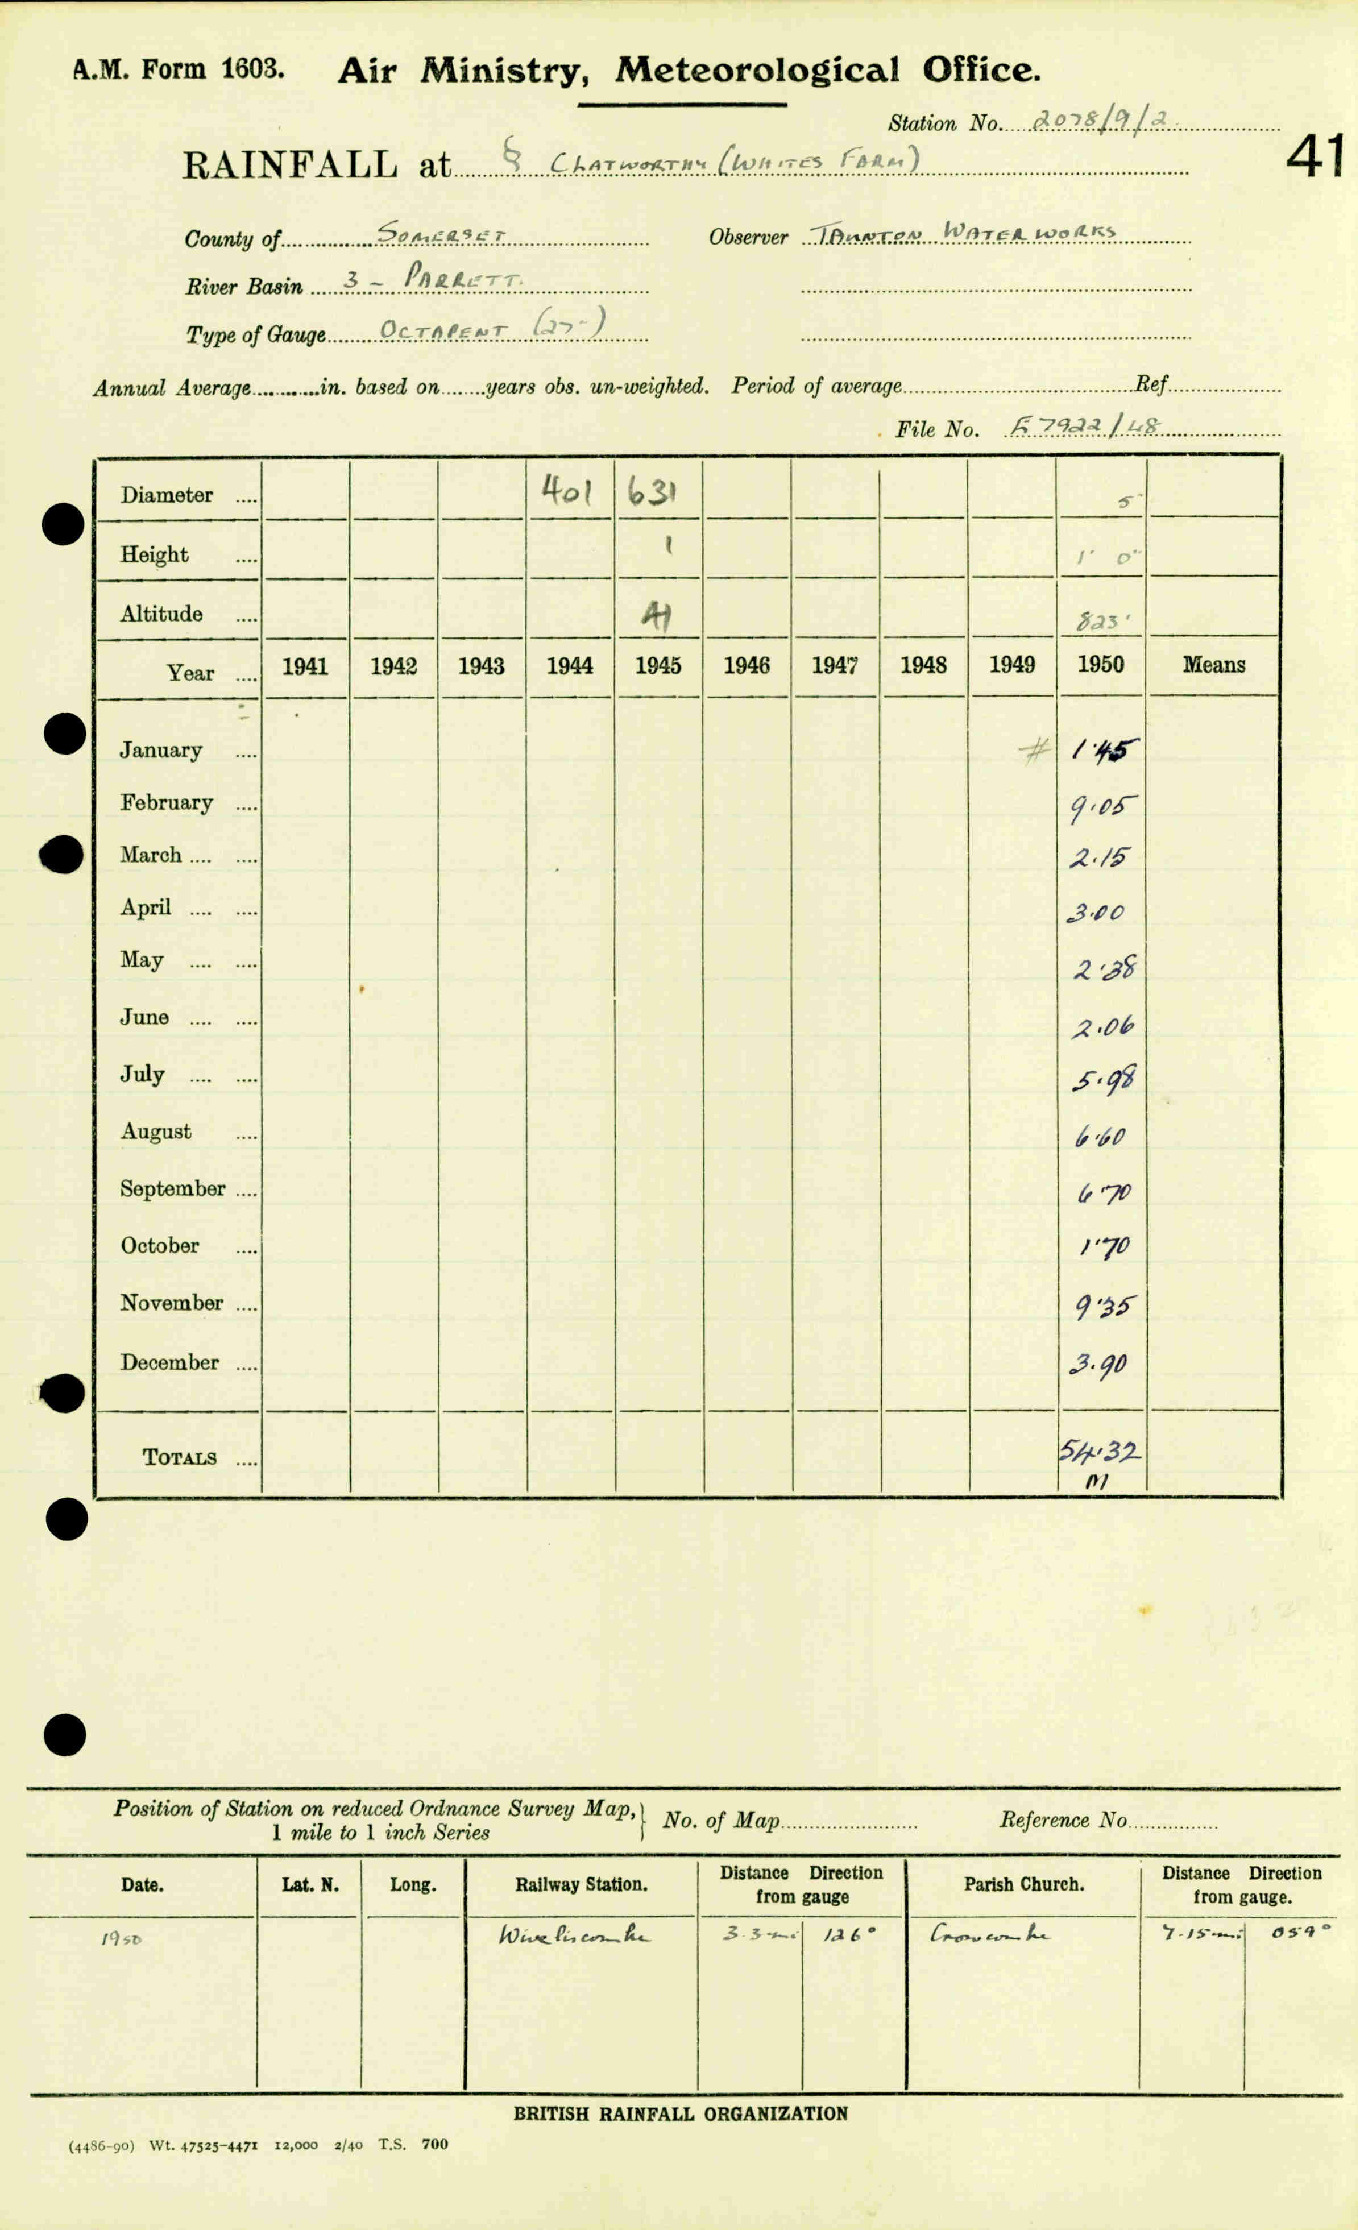 A.M. Form 1603. Air Ministry, Meteorological Office.
Station No. 2078/9/2
41
RAINFALL at § CLATWORTHY (WHITES FARM)
County of SOMERSET Observer TAUNTON WATERWORKS
River Basin 3 – PARRETT.
Type of Gauge OCTAPENT (27")
Annual Average in. based on years obs. un-weighted. Period of average Ref
File No. 7922/48
Diameter 401 631 5"
Height 1 1' 0"
Altitude A1 823'
Year 1941 1942 1943 1944 1945 1946 1947 1948 1949 1950 Means
January # 1.45
February 9.05
March 2.15
April 3.00
May 2.38
June 2.06
July 5.98
August 6.60
September 6.70
October 1.70
November 9.35
December 3.90
TOTALS 54.32
M
Position of Station on reduced Ordnance Survey Map,
1 mile to 1 inch Series } No. of Map Reference No
Date. Lat. N. Long. Railway Station. Distance Direction from gauge Parish Church. Distance Direction from gauge.
1950 Wiveliscombe 3.3 mi 126° Crowcombe 7.15 mi 059°
BRITISH RAINFALL ORGANIZATION
(4486-90) Wt. 47525-4471 12,000 2/40 T.S. 700